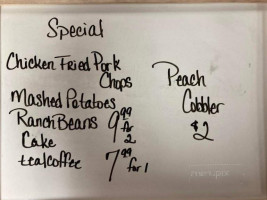 Special
Chicken Fried Pork
Chops
Mashed Potatoes
Ranch Beans
Cake
tea/coffee
9.99
for
2
7.99 for 1
Peach
Cobbler
$2